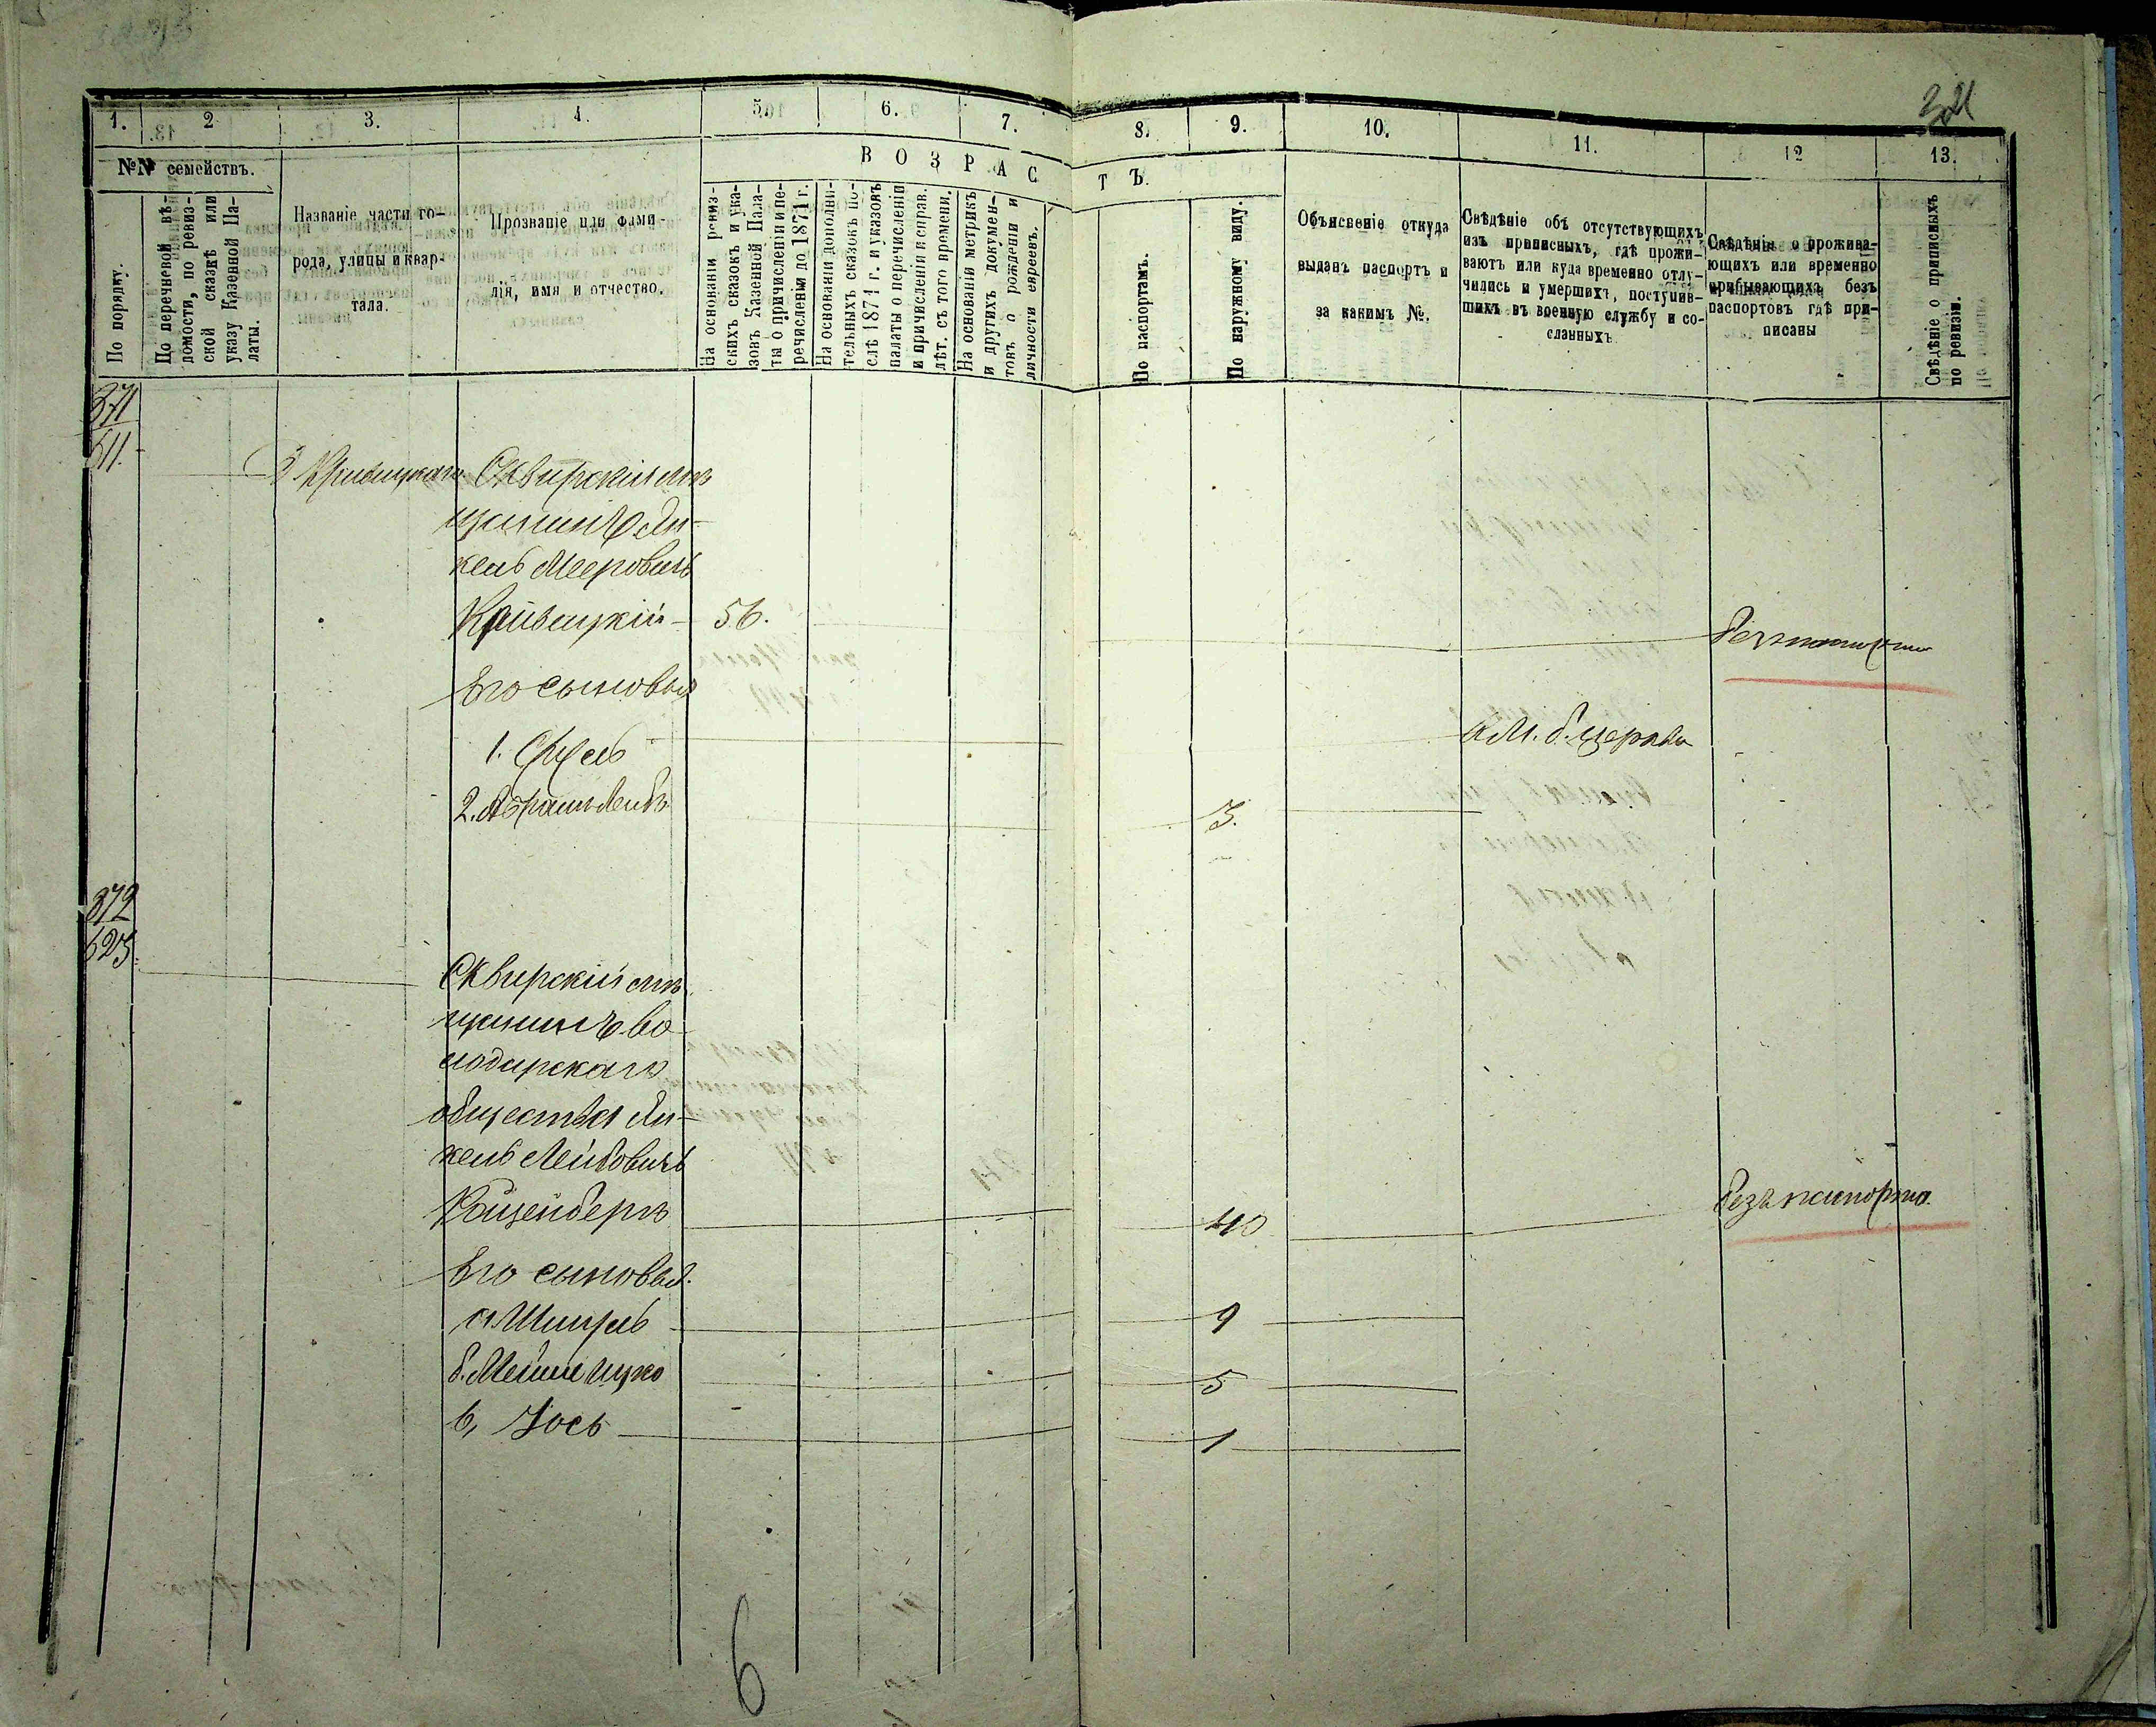 1. 2 3. 4. 5. 6. 7. 8. 9. 10. 11. 12 13.
№№ семействъ.
В О З Р А С Т Ъ.
По порядку.
По перечневой вѣ-
домости, по ревиз-
ской сказкѣ или
указу Казенной Па-
латы.
Названіе части го-
рода, улицы и квар-
тала.
Прозваніе или фами-
лія, имя и отчество.
На основаніи ревиз-
скихъ сказокъ и ука-
зовъ Казенной Пала-
ты о причисленіи и пе-
речисленіи до 1871 г.
На основаніи дополни-
тельныхъ сказокъ по-
слѣ 1871 г. и указовъ
палаты о перечисленіи
и причисленіи исправ.
лѣт. съ того времени.
На основаніи метрикъ
и другихъ докумен-
товъ о рожденіи и
личности евреевъ.
По паспортамъ.
По наружному виду.
Объясненіе откуда
выданъ паспортъ и
за какимъ №.
Свѣдѣніе объ отсутствующихъ
изъ приписныхъ, гдѣ прожи-
ваютъ или куда временно отлу-
чились и умершихъ, поступив-
шихъ въ военную службу и со-
сланныхъ
Свѣдѣнія о прожива-
ющихъ или временно
прибывающихъ безъ
паспортовъ гдѣ при-
писаны
Свѣдѣніе о приписныхъ
по ревизіи.
371
611.
Сквирскій мѣ
щанинъ Ян-
кель Мееровичъ
56.
Его сыновья
1.
в м. б. церкви
2. Абрамъ Лейбъ 3.
372
623
Сквирскій мѣ
щанинъ Во
лодарскаго
общества Ян-
кель Лейбовичъ
40 безъ паспорта.
Его сыновья.
а. 9
б. 5
в, Іось 1
6